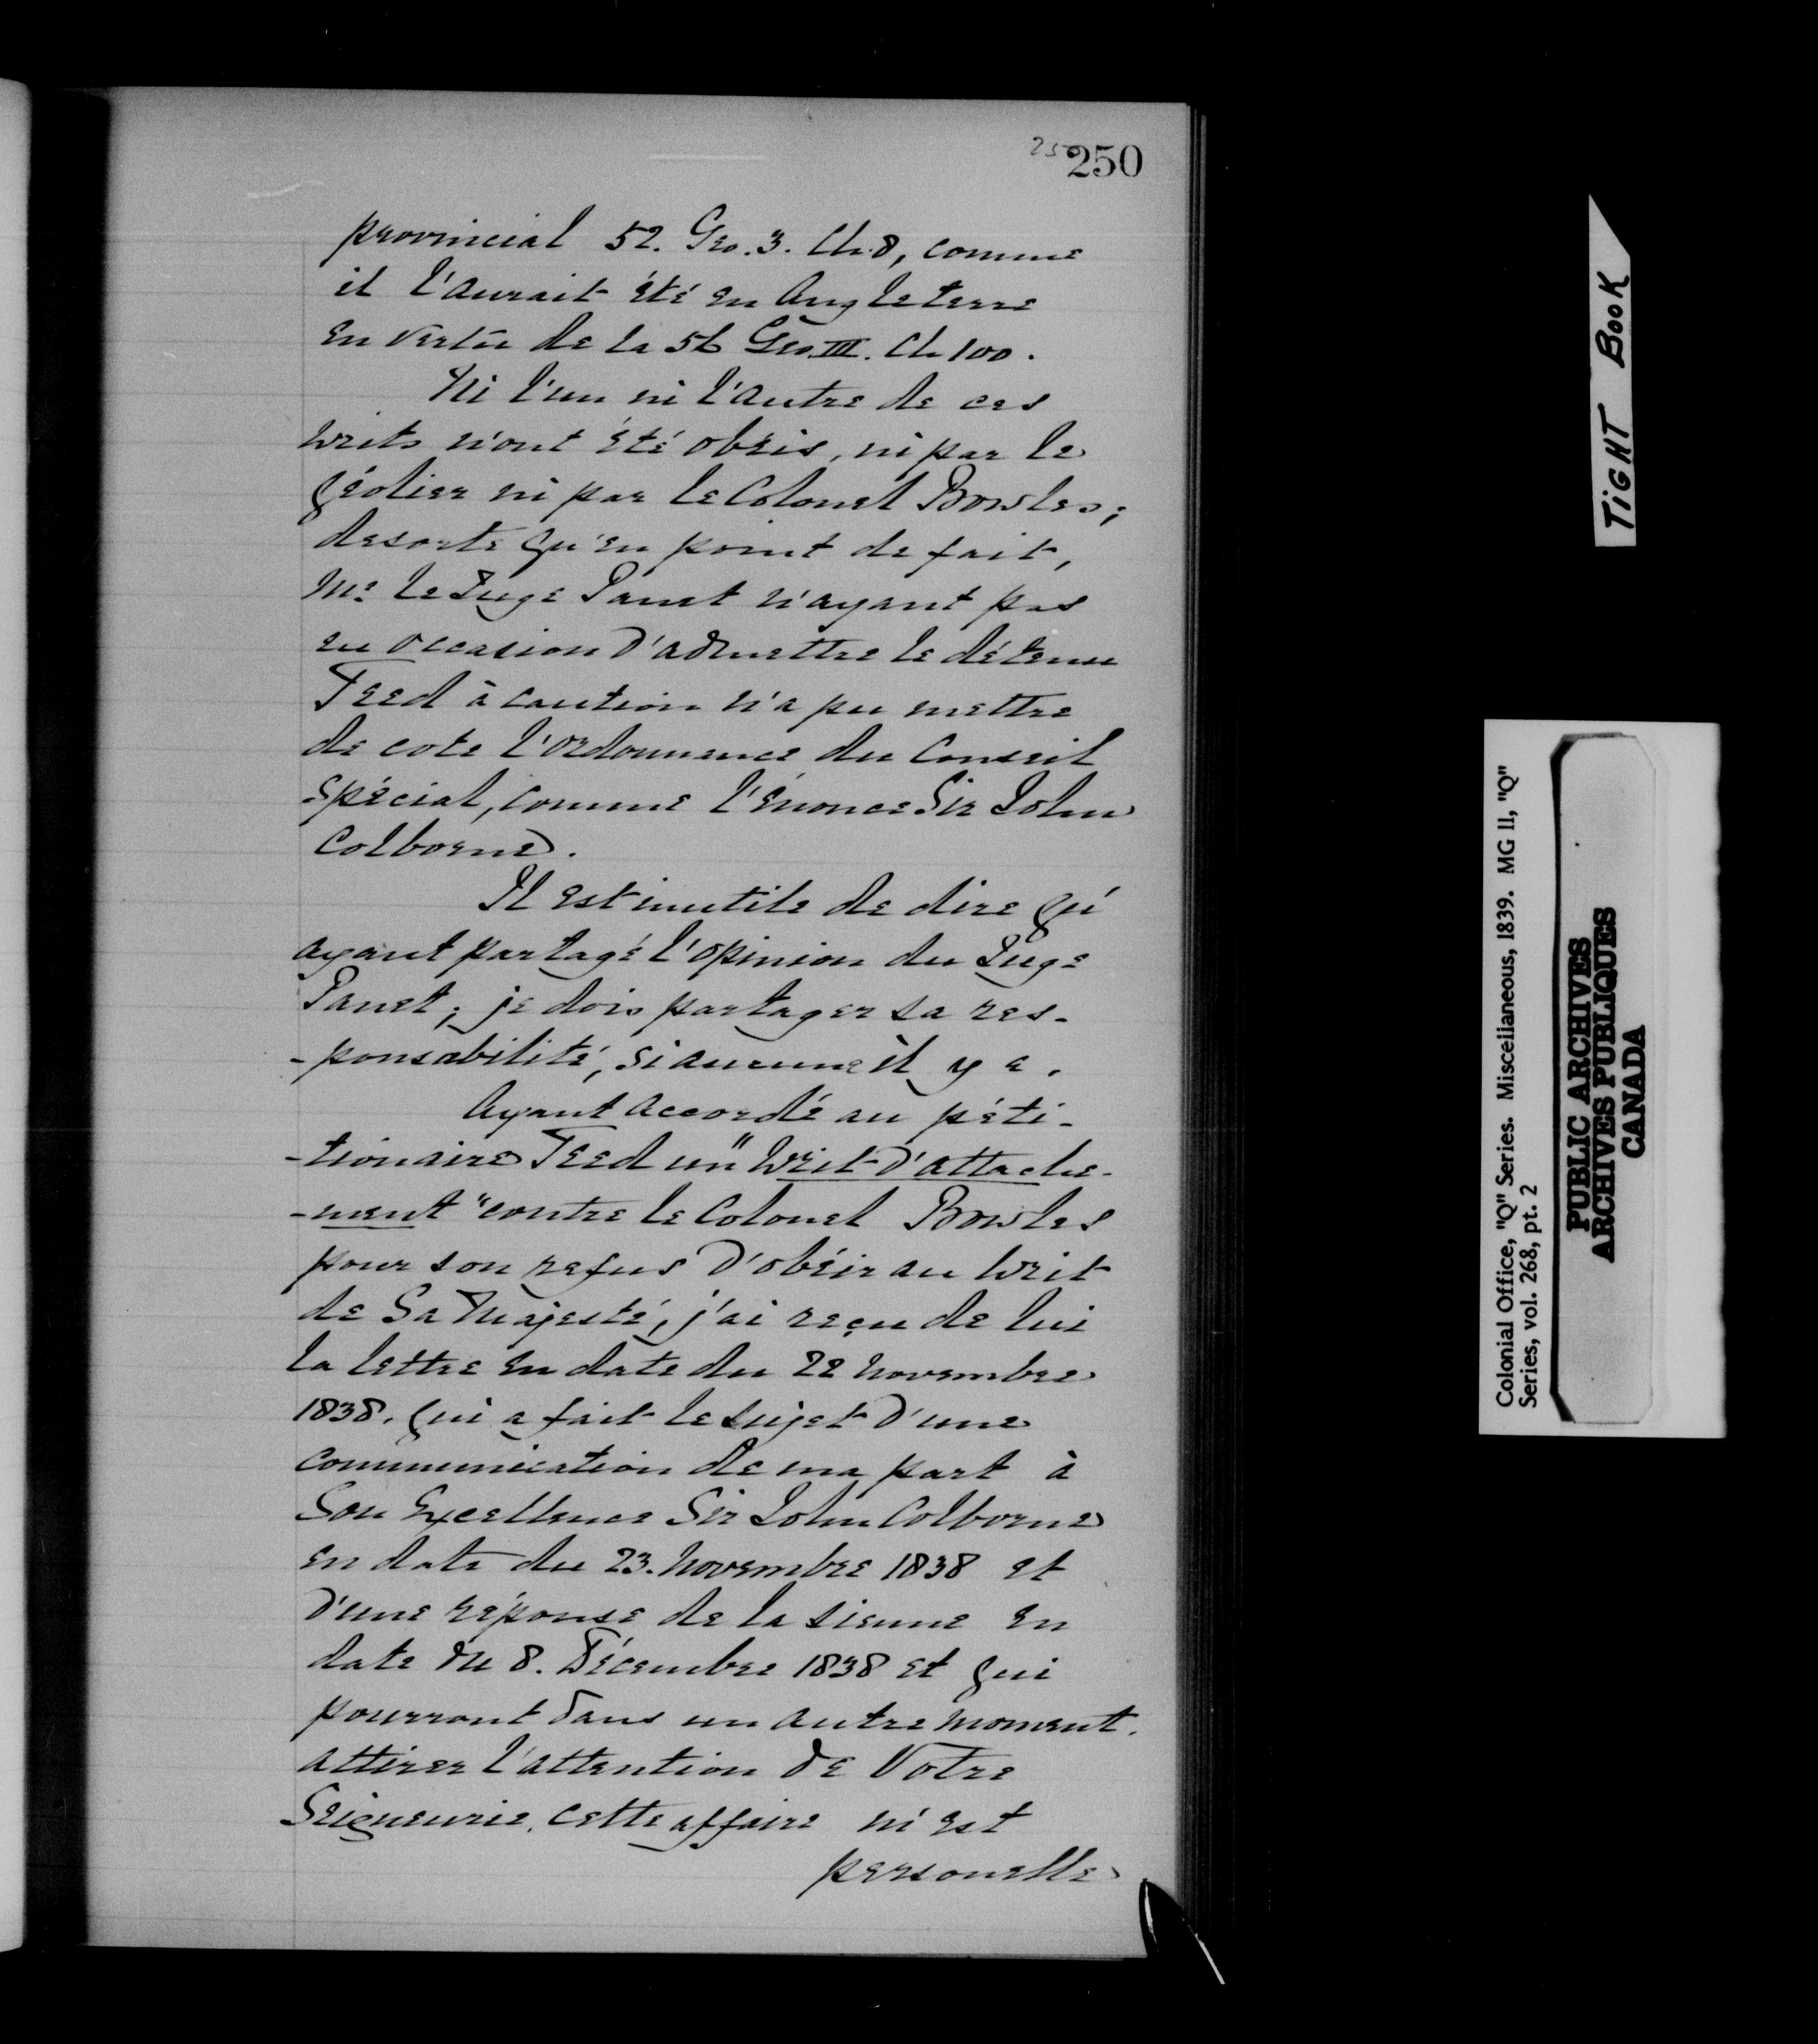 250
250
provincial 52. Geo. 3. Ch. 8, comme
il l'aurait été en Angleterre
en vertu de la 56 Geo. III. Ch 100.
Ni l'un ni l'autre de ces
writs n'ont été obéis, ni par le
géolier ni par le Colonel Bowles;
desorte qu'en point de fait,
Mr. le Juge Panet n'ayant pas
eu occasion d'admettre le détenu
Teed à caution n'a pu mettre
de cote l'ordonnance du Conseil
spécial, comme l'énonce Sir John
Colborne.
Il est inutile de dire qu'
ayant partagé l'opinion du Juge
Panet; je dois partager sa res-
-ponsabilité, si aucune il y a.
Ayant accordé au péti-
-tionaire Teed un "Writ d'attache-
-ment" contre le Colonel Bowles
pour son refus d'obéir au Writ
de Sa Majesté, j'ai reçu de lui
la lettre en date du 22 novembre
1838. qui a fait le sujet d'une
communication de ma part à
Son Excellence Sir John Colborne
en date du 23. novembre 1838 et
d'une réponse de la sienne en
date du 8. Décembre 1838 et qui
pourront dans un autre moment.
attirer l'attention de Votre
Seigneurie. cette affaire m'est
personelle
TIGHT BOOK
Colonial Office, "Q" Series. Miscellaneous, 1839. MG 11, "Q"
Series, vol. 268, pt. 2
PUBLIC ARCHIVES
ARCHIVES PUBLIQUES
CANADA